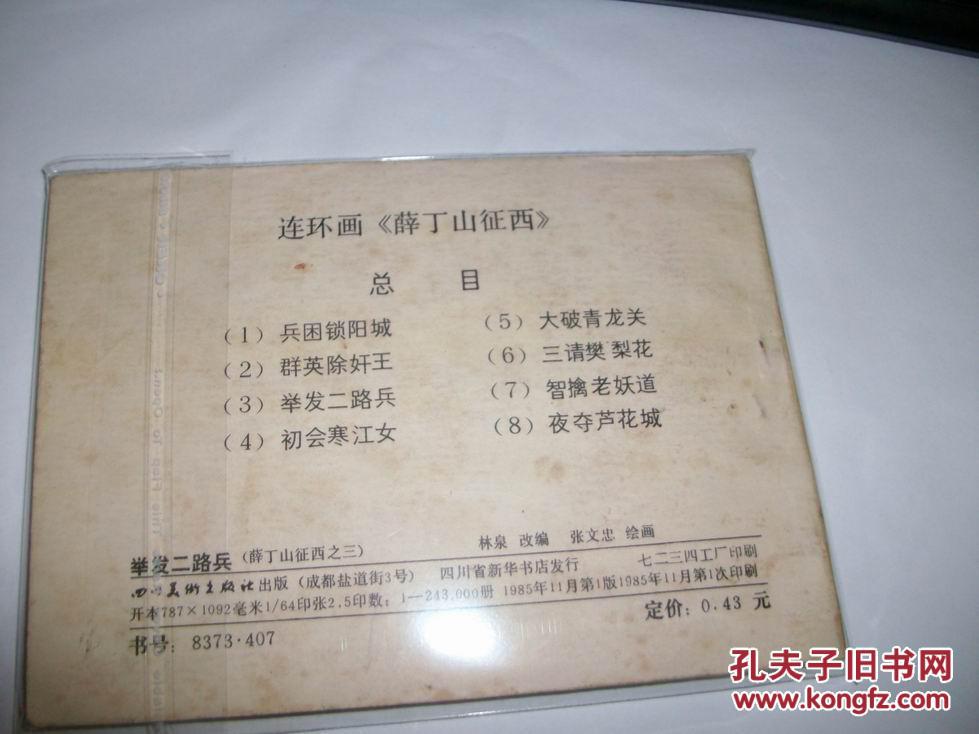 连环画《薛丁山征西》
总 目
(1) 兵困锁阳城
(2) 群英除奸王
(3) 举发二路兵
(4) 初会寒江女
(5) 大破青龙关
(6) 三请樊梨花
(7) 智擒老妖道
(8) 夜夺芦花城
举发二路兵 (薛丁山征西之三) 林泉 改编 张文忠 绘画
四川美术出版社出版 (成都盐道街3号) 四川省新华书店发行 七二三四工厂印刷
开本787×1092毫米1/64印张2.5印数:1—243,000册 1985年11月第1版1985年11月第1次印刷
书号: 8373·407 定价: 0.43 元
孔夫子旧书网
www.kongfz.com